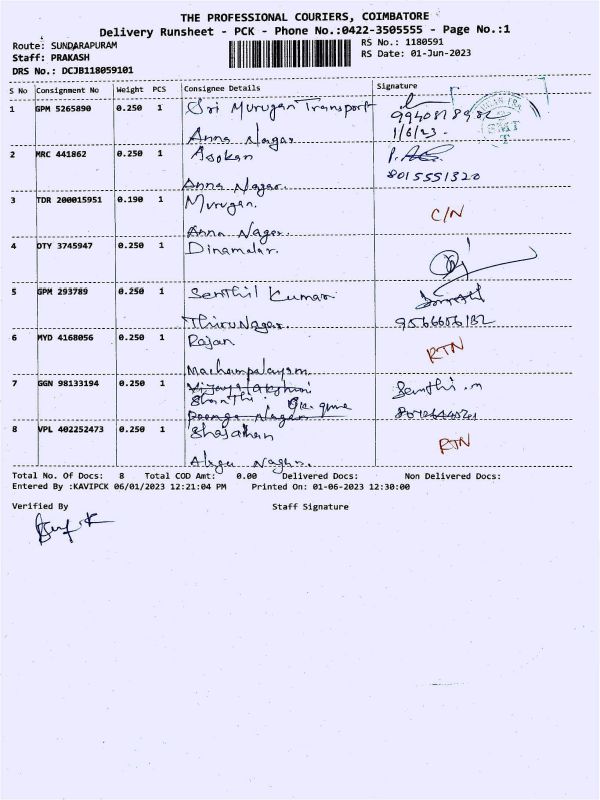 THE PROFESSIONAL COURIERS, COIMBATORE
Delivery Runsheet - PCK - Phone No.:0422-3505555 - Page No.:1
Route: SUNDARAPURAM
RS No.: 1180591
Staff: PRAKASH
RS Date: 01-Jun-2023
DRS No.: DCJB118059101
S No Consignment No Weight PCS Consignee Details Signature
1 GPM 5265890 0.250 1 Sri Murugan Transport
Anna Nagar
1/6/23.
2 MRC 441862 0.250 1 Asokan
Anna Nagar.
8015551320
3 TDR 200015951 0.190 1 Murugan.
C/N
Anna Nagar.
4 DTY 3745947 0.250 1 Dinamalar.
5 GPM 293789 0.250 1 Senthil Kumar
Thiru Nagar.
9566656132
6 MYD 4168056 0.250 1 Rajan
RTN
7 GGN 98133194 0.250 1 Vijayalakshmi
Shanthi
Senthi.n
Nagar
8 VPL 402252473 0.250 1
RTN
Nagar.
Total No. Of Docs: 8 Total COD Amt: 0.00 Delivered Docs: Non Delivered Docs:
Entered By :KAVIPCK 06/01/2023 12:21:04 PM Printed On: 01-06-2023 12:30:00
Verified By Staff Signature